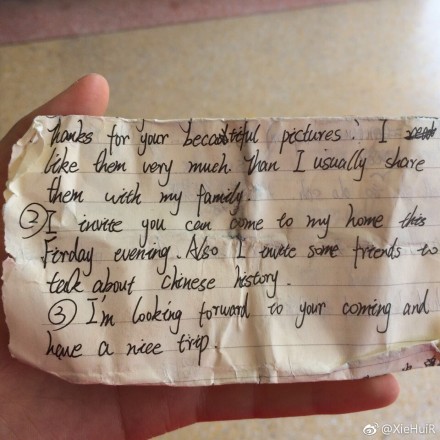 Thanks for your becautiful pictures! I
like them very much. Than I usually share
them with my family.
② I invite you can come to my home this
Firday evening. Also I invite some friends to
teak about Chinese history.
③ I'm looking forward to your coming and
have a nice trip.
@XieHuiR